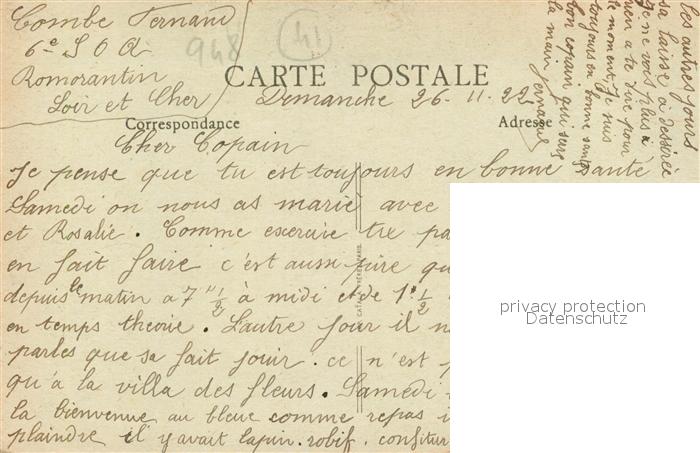 Combe Fernand
6e S O A
Romorantin
Loir et Cher
948
41
CARTE POSTALE
Dimanche 26-11-22
Correspondance
Adresse
Cher Copain
Je pense que tu est toujours en bonne santé
Samedi on nous as marié avec
et Rosalie. Comme exercise
en fait faire c'est aussi pire
depuis le matin a 7 h 1/2 à midi et de 1h 1/2
en temps theorie. L'autre jour il
parles que sa fait jouir. ce n'est
qu'à la villa des fleurs. Samedi
la bienvenue au bleue comme repas
plaindre il y avait lapin. robif. confitur
les autres jours
sa laisse à desirée
je ne vois plus
rien a te dire pour
le moment je suis
toujours en bonne santé
ton copain qui serre
la main Fernand
privacy protection
Datenschutz